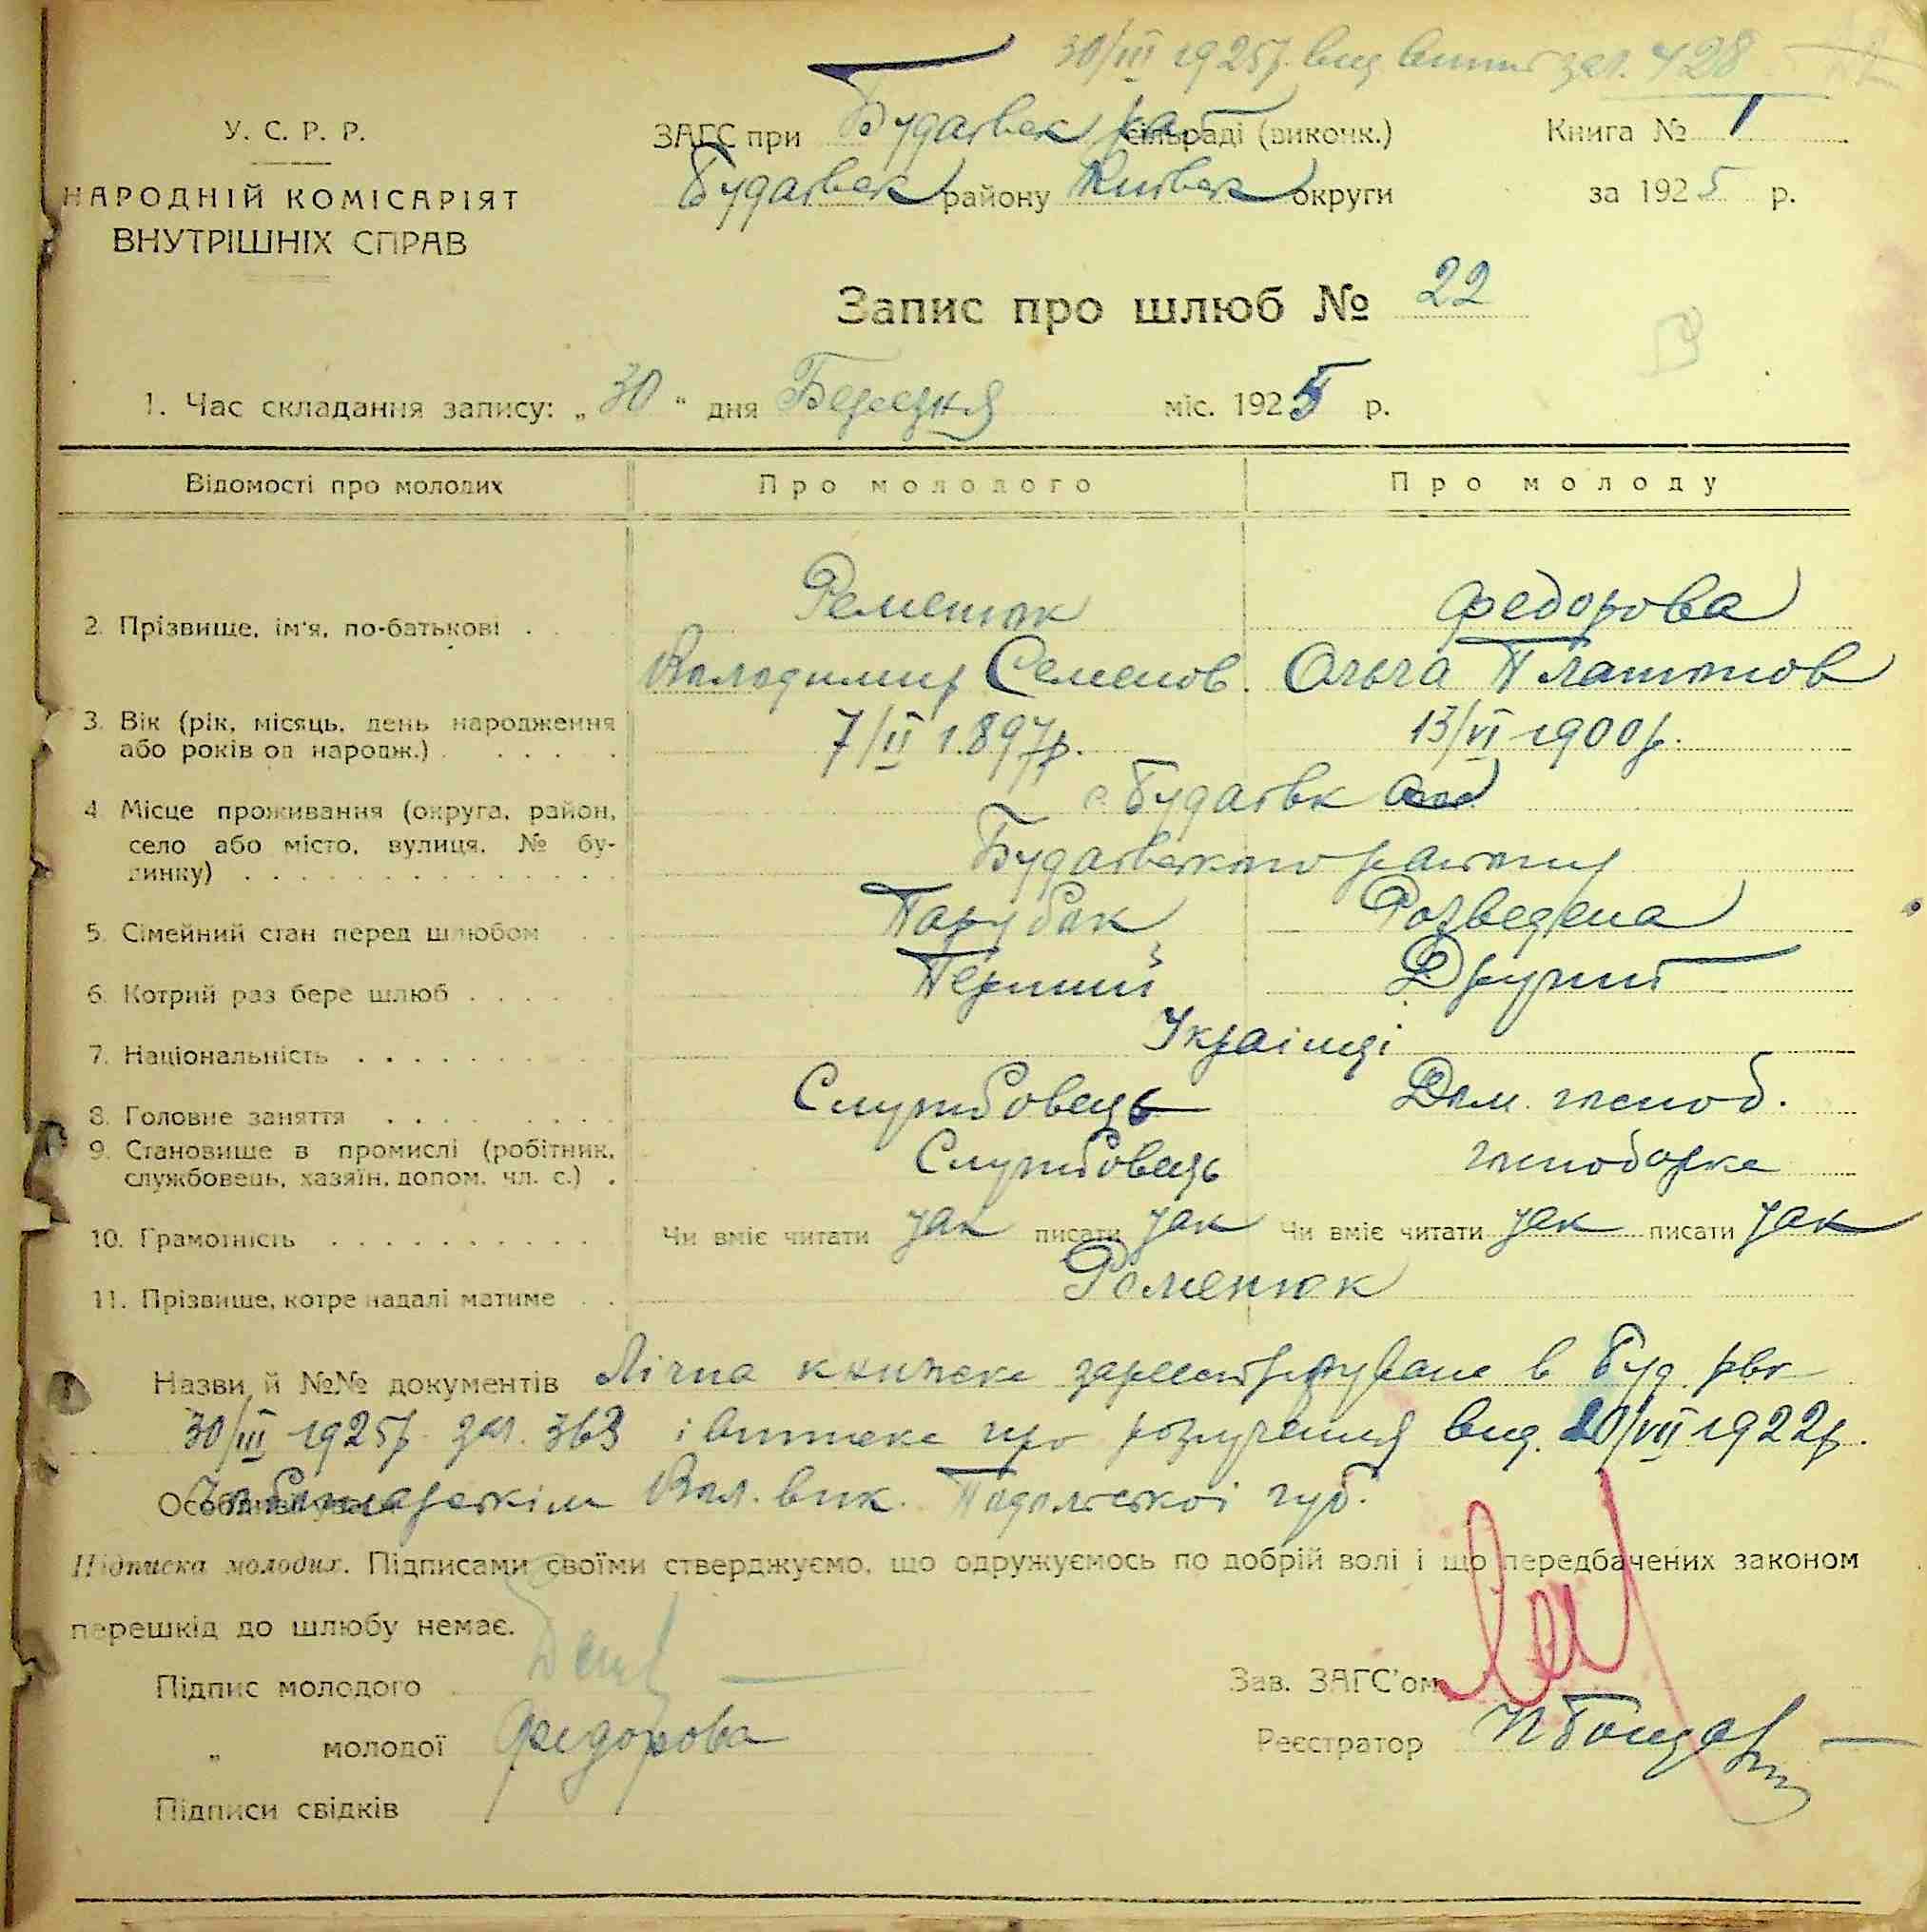 30/III 1925р. вид. витяг зал. 428
У. С. Р. Р.
НАРОДНІЙ КОМІСАРІЯТ
ВНУТРІШНІХ СПРАВ
ЗАГС при Будаївск сільраді (виконк.)
Будаївск району Київск округи
Книга № 1
за 1925 р.
Запис про шлюб № 22
1. Час складання запису: „ 30 " дня Березня міс. 1925 р.
Відомості про молодих Про молодого Про молоду
2. Прізвище, ім'я, по-батькові . Ременюк Федорова
Володимир Семенов. Ольга Платонов
3. Вік (рік, місяць, день народження 7/II 1897р. 13/VI 1900р.
або років од народж.) . . . . . .
4 Місце проживання (округа, район, с. Будаївк
село або місто, вулиця, № бу-
динку) . . . . . . . . . . . . . . Будаївського району
5. Сімейний стан перед шлюбом Парубок Розведена
6. Котрий раз бере шлюб . . . . Перший Другий
7. Національність . . . . . . Українці
8. Головне заняття . . . . . . Службовець Дом. господ.
9. Становище в промислі (робітник, Службовець господарка
службовець, хазяїн, допом. чл. с.) .
10. Грамотність . . . . . . . . . . Чи вміє читати так писати так Чи вміє читати так писати так
11. Прізвище, котре надалі матиме . . Ременюк
Назви й №№ документів Лічна книжка зареєстрована в Буд. рвк
30/III 1925р. зал. 363 і витяг про розлучення вид. 20/VII 1922р.
Особливі уваги Вол. вик. Подольської губ.
Підписка молодих. Підписами своїми стверджуємо, що одружуємось по добрій волі і що передбачених законом
перешкід до шлюбу немає.
Підпис молодого
Зав. ЗАГС'ом
„ молодої Федорова
Реєстратор
Підписи свідків